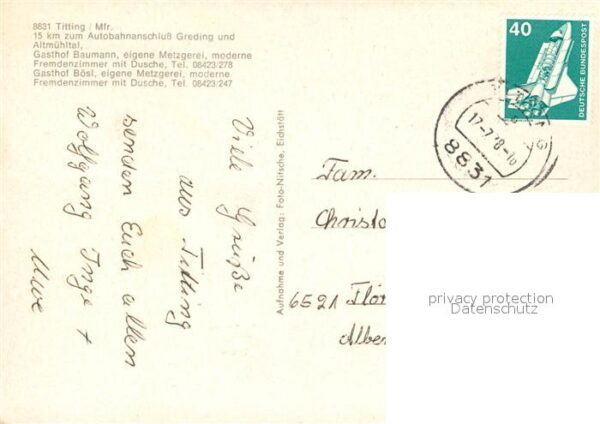 8831 Titting / Mfr.
15 km zum Autobahnanschluß Greding und
Altmühltal,
Gasthof Baumann, eigene Metzgerei, moderne
Fremdenzimmer mit Dusche, Tel. 08423/278
Gasthof Bösl, eigene Metzgerei, moderne
Fremdenzimmer mit Dusche, Tel. 08423/247
Viele Grüße
aus Titting
senden Euch allen
Wolfgang Inge +
Uwe
Aufnahme und Verlag: Foto-Nitsche, Eichstätt
40
DEUTSCHE BUNDESPOST
8831
Fam.
Christo
6521 Flör
Albe
privacy protection
Datenschutz